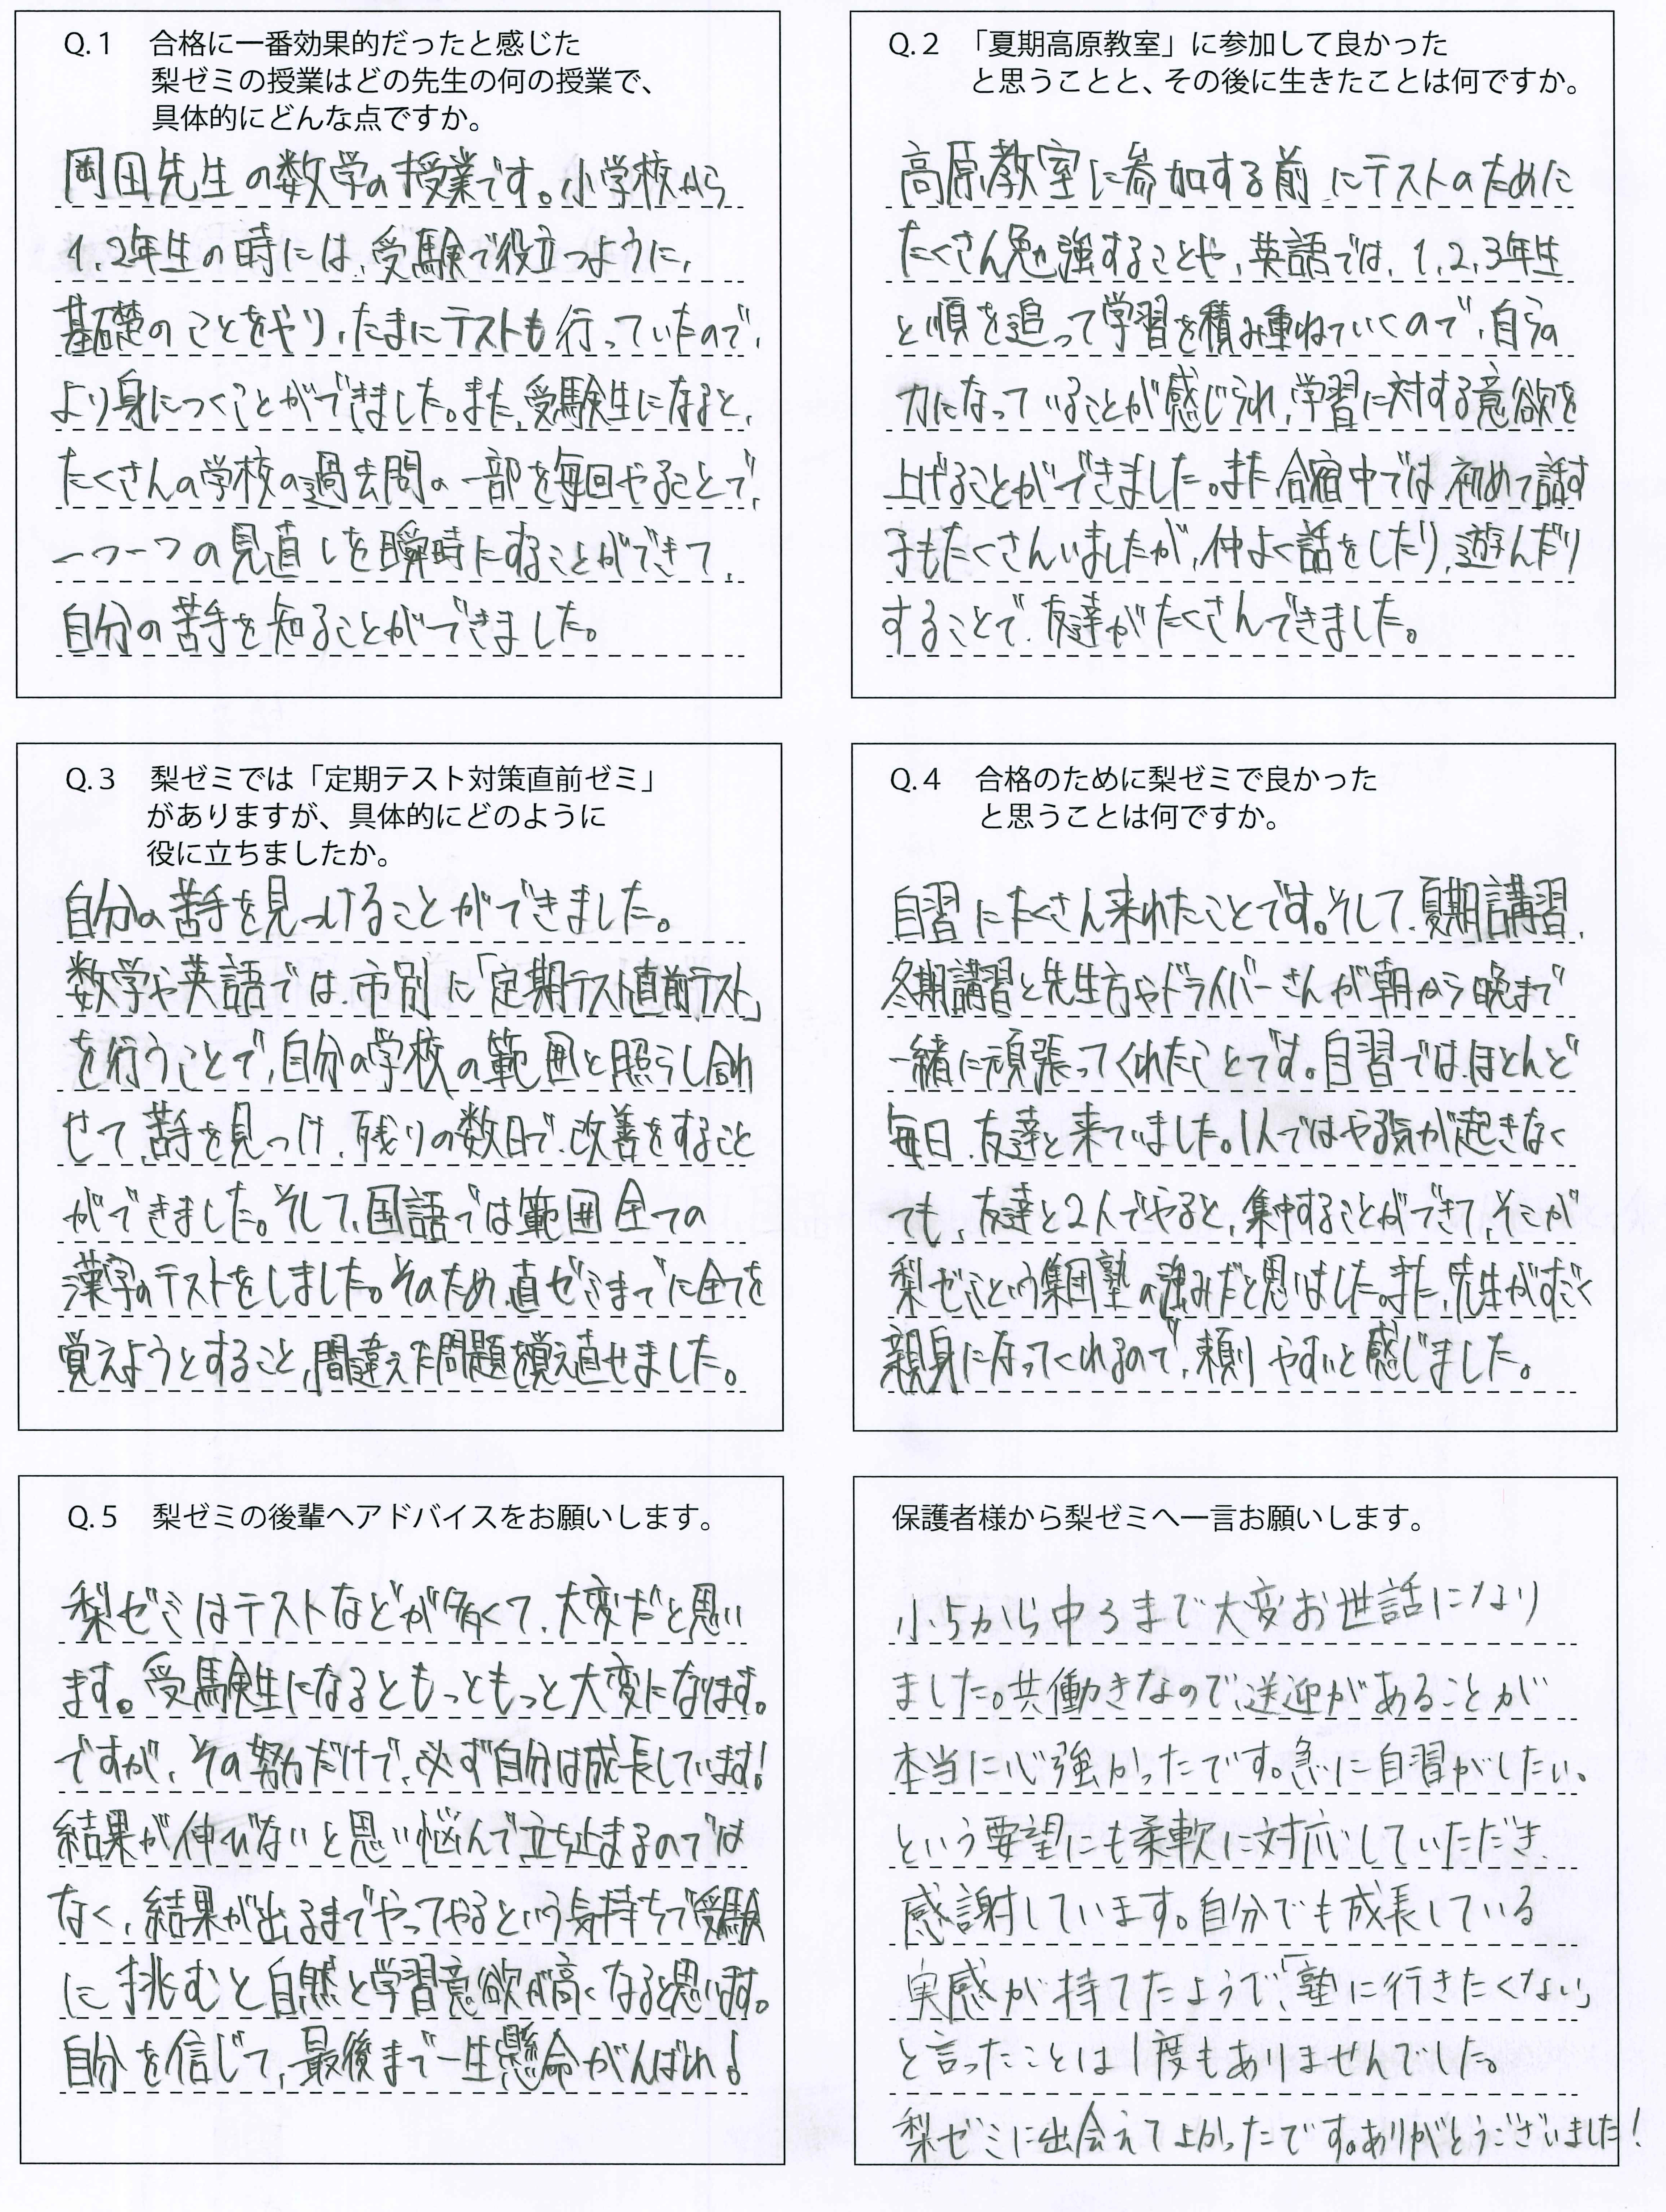 Q.1 合格に一番効果的だったと感じた
梨ゼミの授業はどの先生の何の授業で、
具体的にどんな点ですか。
岡田先生の数学の授業です。小学校から
1,2年生の時には、受験で役立つように、
基礎のことをやり、たまにテストも行っていたので、
より身につくことができました。また、受験生になると、
たくさんの学校の過去問の一部を毎回やることで、
一つ一つの見直しを瞬時にすることができて、
自分の苦手を知ることができました。
Q.2 「夏期高原教室」に参加して良かった
と思うことと、その後に生きたことは何ですか。
高原教室に参加する前にテストのために
たくさん勉強することや、英語では、1,2,3年生
と順を追って学習を積み重ねていくので、自らの
力になっていることが感じられ、学習に対する意欲を
上げることができました。また合宿中では、初めて話す
子もたくさんいましたが、仲よく話をしたり、遊んだり
することで、友達がたくさんできました。
Q.3 梨ゼミでは「定期テスト対策直前ゼミ」
がありますが、具体的にどのように
役に立ちましたか。
自分の苦手を見つけることができました。
数学や英語では、市別に「定期テスト直前テスト」
を行うことで、自分の学校の範囲と照らし合わ
せて、苦手を見つけ、残りの数日で、改善をすること
ができました。そして、国語では範囲全ての
漢字のテストをしました。そのため、直ゼミまでに全てを
覚えようとすること、間違えた問題を覚え直せました。
Q.4 合格のために梨ゼミで良かった
と思うことは何ですか。
自習にたくさん来れたことです。そして、夏期講習、
冬期講習と先生方やドライバーさんが朝から晩まで
一緒に頑張ってくれたことです。自習では、ほとんど
毎日、友達と来ていました。1人ではやる気が起きなく
ても、友達と2人でやると、集中することができて、そこが
梨ゼミという集団塾の強みだと思いました。また、先生がすごく
親身になってくれるので、頼りやすいと感じました。
Q.5 梨ゼミの後輩へアドバイスをお願いします。
梨ゼミはテストなどが多くて、大変だと思い
ます。受験生になるともっともっと大変になります。
ですが、その努力だけで、必ず自分は成長しています!
結果が伸びないと思い悩んで立ち止まるのでは
なく、結果が出るまでやってやるという気持ちで受験
に挑むと自然と学習意欲が高くなると思います。
自分を信じて、最後まで一生懸命がんばれ!
保護者様から梨ゼミへ一言お願いします。
小5から中3まで大変お世話になり
ました。共働きなので、送迎があることが
本当に心強かったです。急に自習がしたい。
という要望にも柔軟に対応していただき、
感謝しています。自分でも成長している
実感が持てたようで、「塾に行きたくない」
と言ったことは1度もありませんでした。
梨ゼミに出会えてよかったです。ありがとうございました!